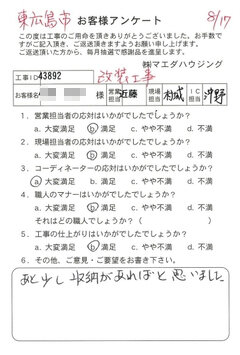 東広島市 お客様アンケート 8/17
この度は工事のご用命を頂きありがとうございました。お手数で
すがご記入頂き、ご返送頂きますようお願い申し上げます。
ご返送頂いた方から、毎月抽選で感謝品を進呈します。
㈱マエダハウジング
工事ID 43892 改装工事
お客様名 様 営業担当 近藤 現場担当 IC担当
1．営業担当者の応対はいかがでしたでしょうか？
a. 大変満足 b. 満足 c. やや不満 d. 不満
2．現場担当者の応対はいかがでしたでしょうか？
a. 大変満足 b. 満足 c. やや不満 d. 不満
3．コーディネーターの応対はいかがでしたでしょうか？
a. 大変満足 b. 満足 c. やや不満 d. 不満
4．職人のマナーはいかがでしたでしょうか？
a. 大変満足 b. 満足 c. やや不満 d. 不満
それはどの職人でしょうか？（ ）
5．工事の仕上がりはいかがでしたでしょうか？
a. 大変満足 b. 満足 c. やや不満 d. 不満
6．その他、ご意見・ご要望をお書き下さい。
あと少し収納があればと思いました